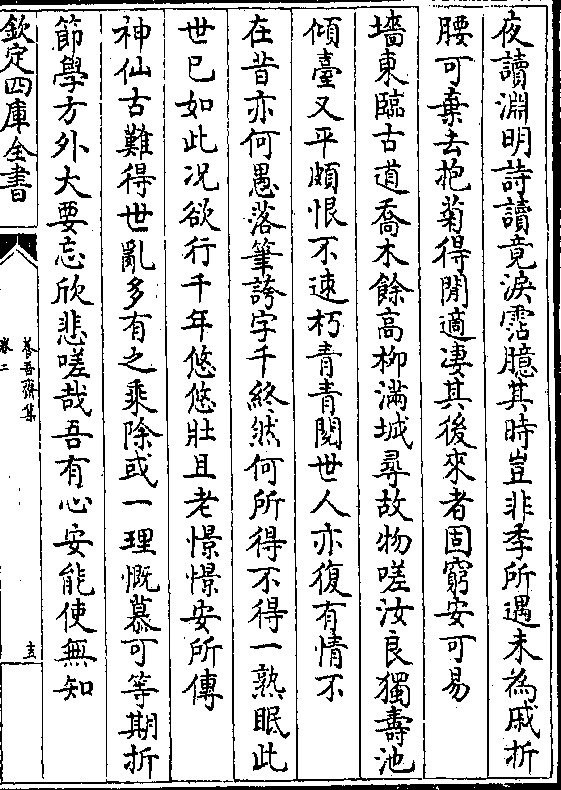 夜讀淵明詩讀竟淚霑臆其時豈非季所遇未為戚折
腰可棄去抱菊得閒適凄其後來者固窮安可易
墻東臨古道喬木餘高柳滿城尋故物嗟汝良獨壽池
傾臺又平頗恨不速朽青青閱世人亦復有情不
在昔亦何愚落筆誇字千終然何所得不得一熟眠此
世已如此况欲行千年悠悠壯且老憬憬安所傳
神仙古難得世亂多有之乘除或一理慨慕可等期折
節學方外大要忘欣悲嗟哉吾有心安能使無知
欽定四庫全書
養吾齋集
卷二